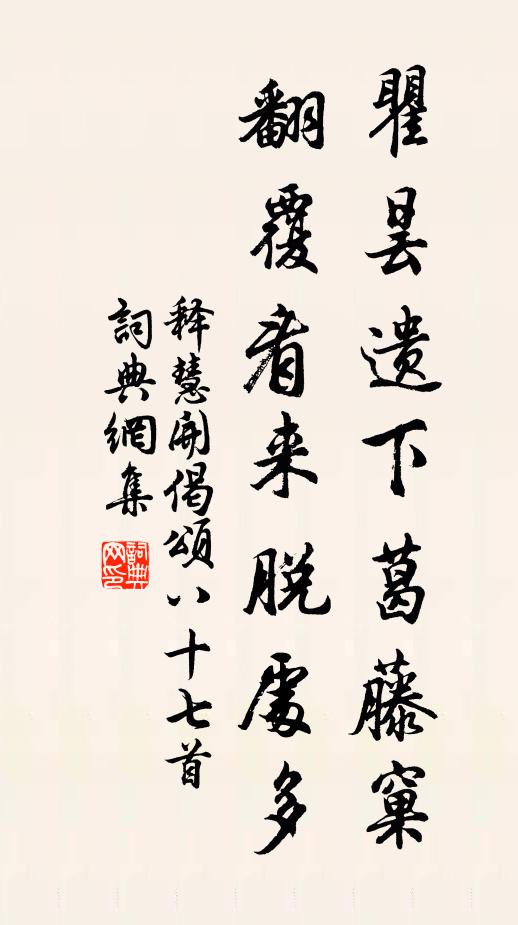 瞿昙遗下葛藤窠
翻覆看来脱处多
释慧開偈頌八十七首
詞典網集
詞典网印